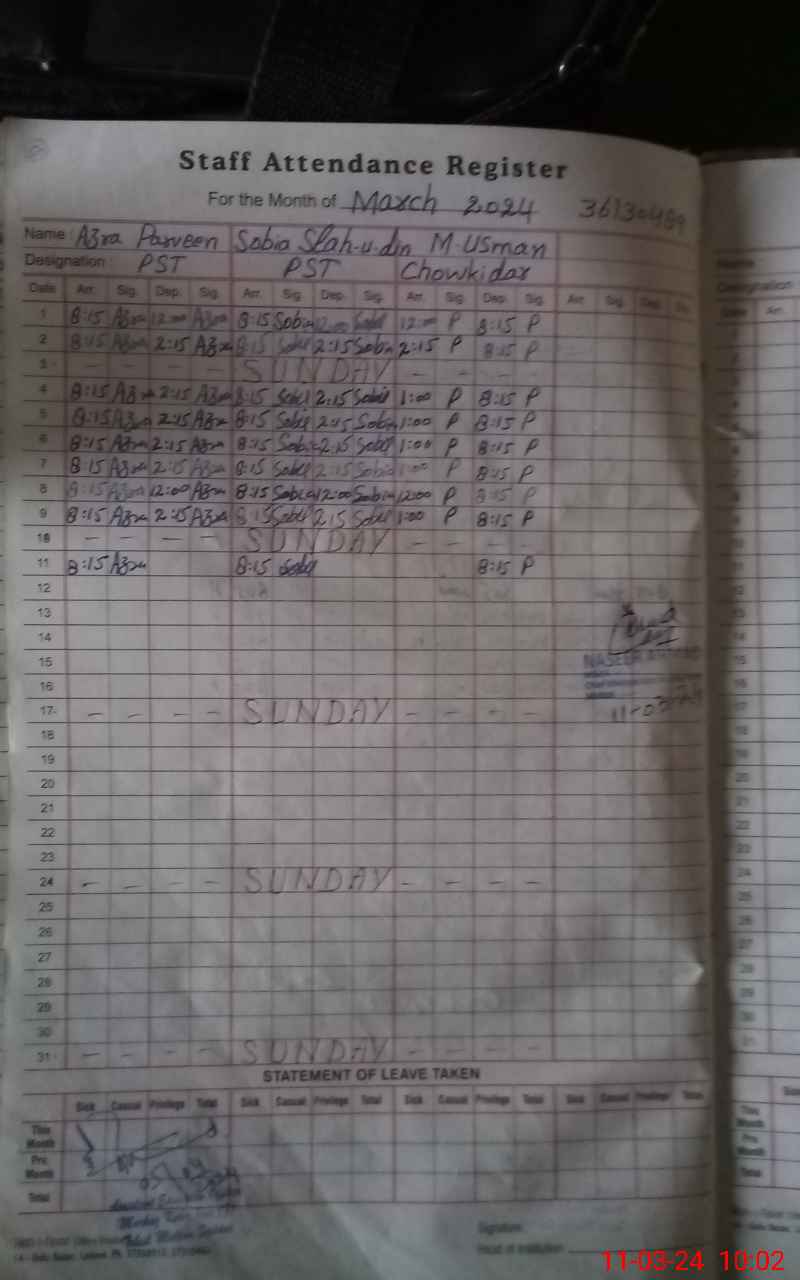 Staff Attendance Register
For the Month of March 2024 36130459
Name : Azra Parveen Sobia Slah-u-din M.Usman
Designation : PST PST Chowkidar
Date Arr. Sig. Dep. Sig. Arr. Sig. Dep. Sig. Arr. Sig. Dep. Sig. Arr. Sig. Dep.
1 8:15 Azra 12:00 Azra 8:15 Sobia 12:00 Sobia 12:00 P 8:15 P
2 8:15 Azra 2:15 Azra 8:15 Sobia 2:15 Sobia 2:15 P 8:15 P
3 - - - - SUNDAY - - - -
4 8:15 Azra 2:15 Azra 8:15 Sobia 2:15 Sobia 1:00 P 8:15 P
5 8:15 Azra 2:15 Azra 8:15 Sobia 2:15 Sobia 1:00 P 8:15 P
6 8:15 Azra 2:15 Azra 8:15 Sobia 2:15 Sobia 1:00 P 8:15 P
7 8:15 Azra 2:15 Azra 8:15 Sobia 2:15 Sobia 1:00 P 8:15 P
8 8:15 Azra 12:00 Azra 8:15 Sobia 12:00 Sobia 12:00 P 8:15 P
9 8:15 Azra 2:15 Azra 8:15 Sobia 2:15 Sobia 1:00 P 8:15 P
10 - - - - SUNDAY - - - -
11 8:15 Azra 8:15 Sobia 8:15 P
12
13
14
15
NASEER
16
17 - - - - SUNDAY - - - -
11-03-24
18
19
20
21
22
23
24 - - - - SUNDAY - - - -
25
26
27
28
29
30
31 - - - - SUNDAY - - - -
STATEMENT OF LEAVE TAKEN
Sick Casual Privilege Total Sick Casual Privilege Total Sick Casual Privilege Total Sick Casual Privilege Total
This Month
Pre Month
Total
Signature
Head of Institution
11-03-24 10:02